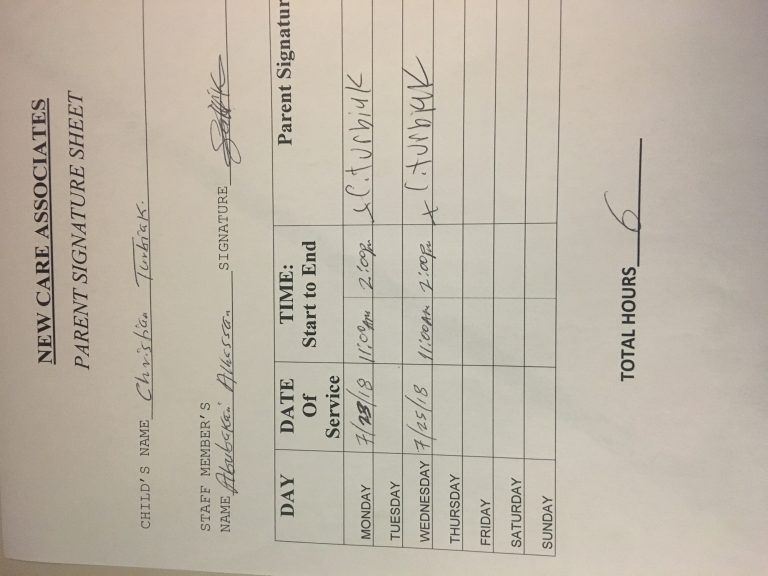 NEW CARE ASSOCIATES
PARENT SIGNATURE SHEET
CHILD'S NAME Christian Turbiak.
STAFF MEMBER'S
NAME Abubakari Alhassan SIGNATURE
DAY DATE Of Service TIME: Start to End Parent Signatur
MONDAY 7/23/18 11:00am 2:00pm x C.turbiak
TUESDAY
WEDNESDAY 7/25/18 11:00am 2:00pm x C.turbiak
THURSDAY
FRIDAY
SATURDAY
SUNDAY
TOTAL HOURS 6